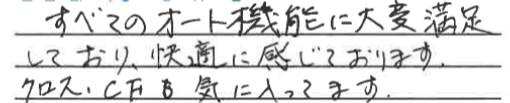 すべてのオート機能に大変満足
しており、快適に感じております.
クロス、CFも気に入ってます.